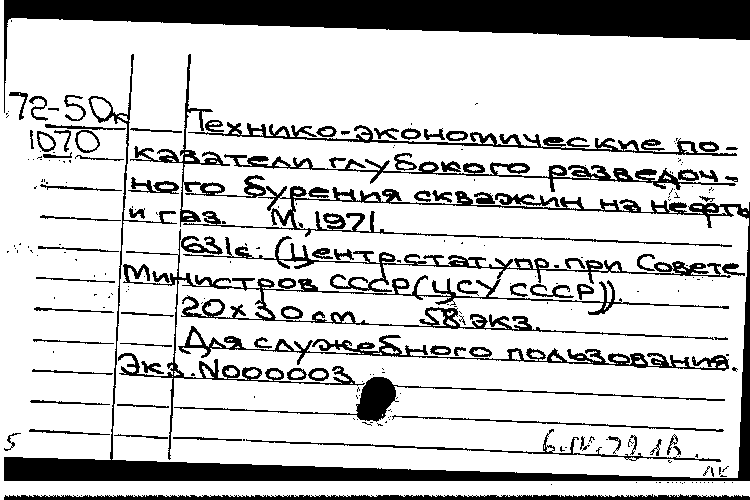 72-50к
1070
Технико-экономические по-
казатели глубокого разведоч-
ного бурения скважин на нефть
и газ. М., 1971.
631с. (Центр.стат.упр.при Совете
Министров СССР(ЦСУ СССР)).
20х30 см. 58 экз.
Для служебного пользования.
Экз.N000003
6.IV.72.1В.
ЛК
5